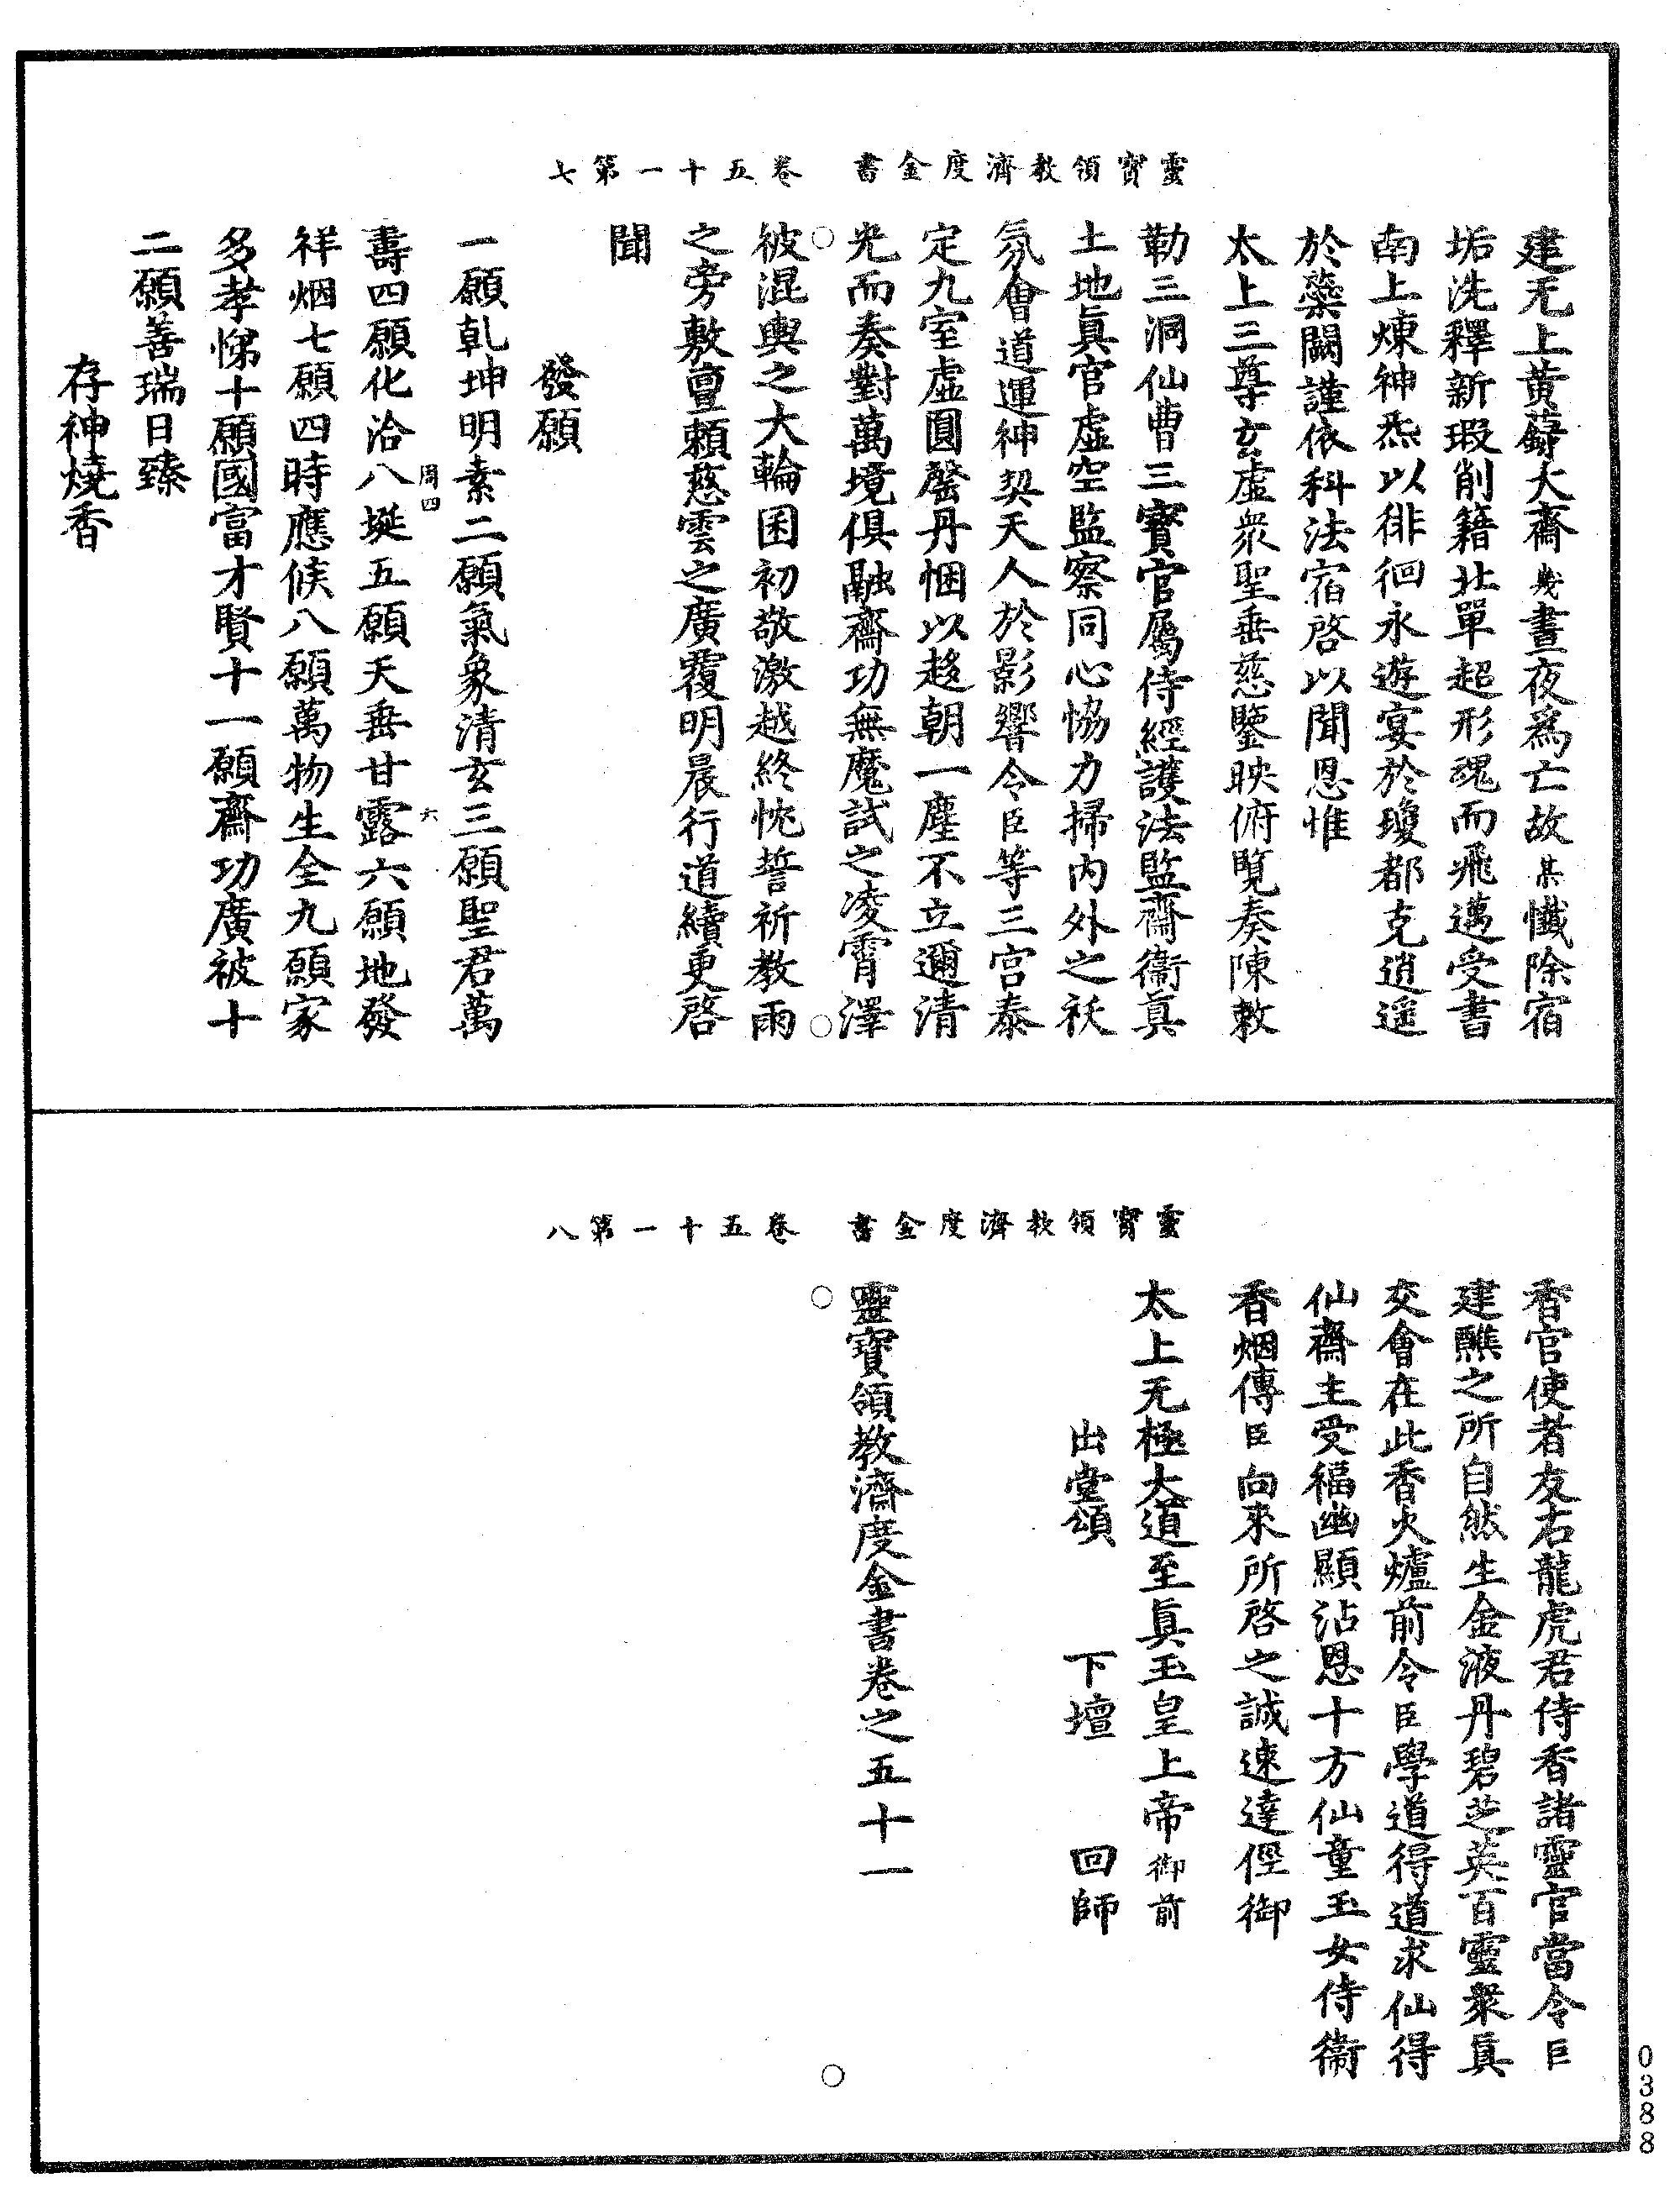 靈寶領教濟度金書　卷五十一第七
建无上黃籙大齋幾晝夜爲亡故某懺除宿
垢洗釋新瑕削籍北單超形魂而飛邁受書
南上煉神炁以徘徊永遊宴於瓊都克逍遥
於蘂闕謹依科法宿啓以聞恩惟
太上三尊玄虛衆聖垂慈鑒映俯覽奏陳敕
勒三洞仙曹三寶官屬侍經護法監齋衛眞
土地眞官虛空監察同心恊力掃內外之祅
氛會道運神契天人於影響令臣等三宮泰
定九室虛圓罄丹悃以趍朝一塵不立邇清
光而奏對萬境俱融齋功無魔試之凌霄澤
彼混輿之大輪困初敬激越終忱誓祈教雨
之旁敷亶賴慈雲之廣覆明晨行道續更啓
聞
發願
一願乾坤明素二願氣象清玄三願聖君萬
周四　六
壽四願化洽八埏五願天垂甘露六願地發
祥烟七願四時應候八願萬物生全九願家
多孝悌十願國富才賢十一願齋功廣被十
二願善瑞日臻
存神燒香
靈寶領教濟度金書　卷五十一第八
香官使者友右龍虎君侍香諸靈官當令臣
建醮之所自然生金液丹碧芝英百靈衆眞
交會在此香火爐前令臣學道得道求仙得
仙齋主受福幽顯沾恩十方仙童玉女侍衛
香烟傳臣向來所啓之誠速達俓御
太上无極大道至眞玉皇上帝御前
出堂頌　下壇　回師
靈寶領教濟度金書卷之五十一
0388